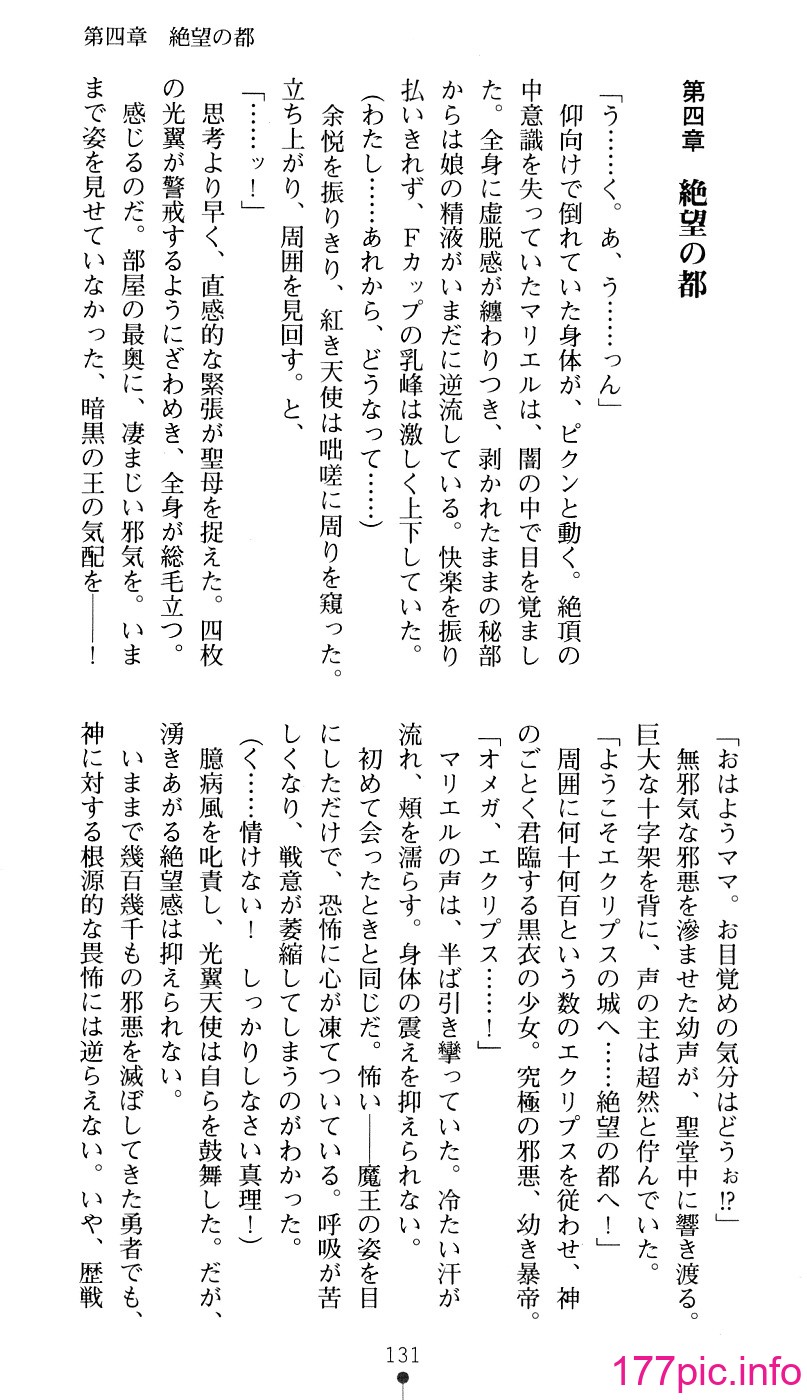 第四章　絶望の都
第四章　絶望の都
「う……く。あ、う……っん」
　仰向けで倒れていた身体が、ピクンと動く。絶頂の
中意識を失っていたマリエルは、闇の中で目を覚まし
た。全身に虚脱感が纏わりつき、剥かれたままの秘部
からは娘の精液がいまだに逆流している。快楽を振り
払いきれず、Ｆカップの乳峰は激しく上下していた。
（わたし……あれから、どうなって……）
　余悦を振りきり、紅き天使は咄嗟に周りを窺った。
立ち上がり、周囲を見回す。と、
「……ッ！」
　思考より早く、直感的な緊張が聖母を捉えた。四枚
の光翼が警戒するようにざわめき、全身が総毛立つ。
　感じるのだ。部屋の最奥に、凄まじい邪気を。いま
まで姿を見せていなかった、暗黒の王の気配を――！
「おはようママ。お目覚めの気分はどうぉ!?」
　無邪気な邪悪を滲ませた幼声が、聖堂中に響き渡る。
巨大な十字架を背に、声の主は超然と佇んでいた。
「ようこそエクリプスの城へ……絶望の都へ！」
　周囲に何十何百という数のエクリプスを従わせ、神
のごとく君臨する黒衣の少女。究極の邪悪、幼き暴帝。
「オメガ、エクリプス……！」
　マリエルの声は、半ば引き攣っていた。冷たい汗が
流れ、頬を濡らす。身体の震えを抑えられない。
　初めて会ったときと同じだ。怖い――魔王の姿を目
にしただけで、恐怖に心が凍てついている。呼吸が苦
しくなり、戦意が萎縮してしまうのがわかった。
（く……情けない！　しっかりしなさい真理！）
　臆病風を叱責し、光翼天使は自らを鼓舞した。だが、
湧きあがる絶望感は抑えられない。
　いままで幾百幾千もの邪悪を滅ぼしてきた勇者でも、
神に対する根源的な畏怖には逆らえない。いや、歴戦
131
177pic.info